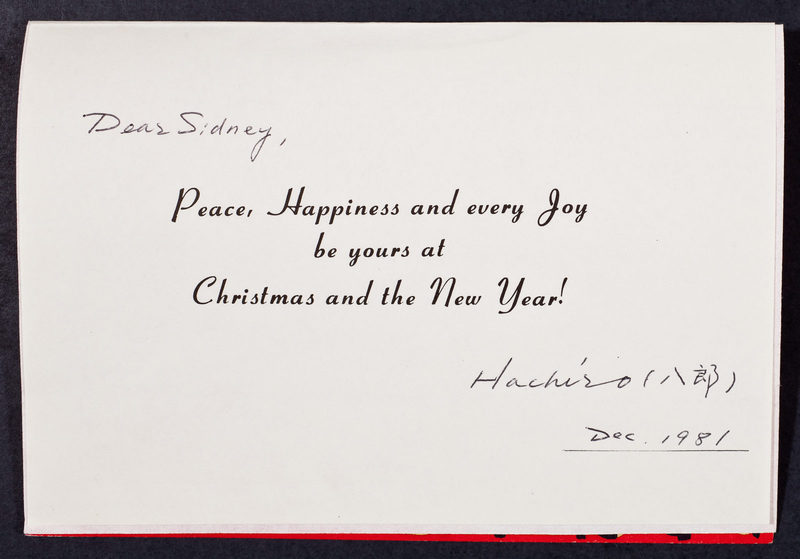 Dear Sidney,
Peace, Happiness and every Joy
be yours at
Christmas and the New Year!
Hachiro (八郎)
Dec. 1981